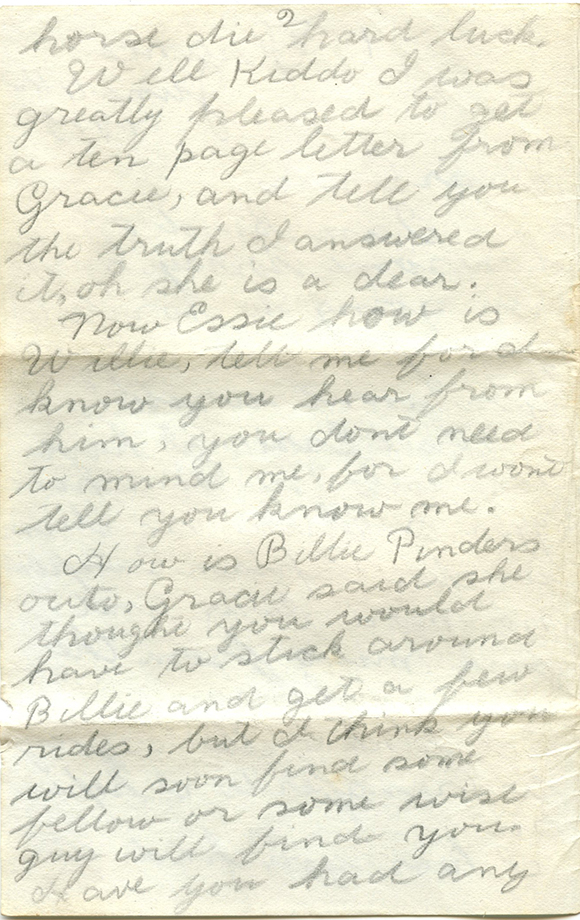 horse die? hard luck.
Well Kiddo I was
greatly pleased to get
a ten page letter from
Gracie, and tell you
the truth I answered
it, oh she is a dear.
Now Essie how is
Willie, tell me for I
know you hear from
him, you dont need
to mind me, for I wont
tell you know me.
How is Billie Pinders
outo, Gracie said she
thought you would
have to stick around
Billie and get a few
rides, but I think you
will soon find some
fellow or some wise
guy will find you.
Have you had any